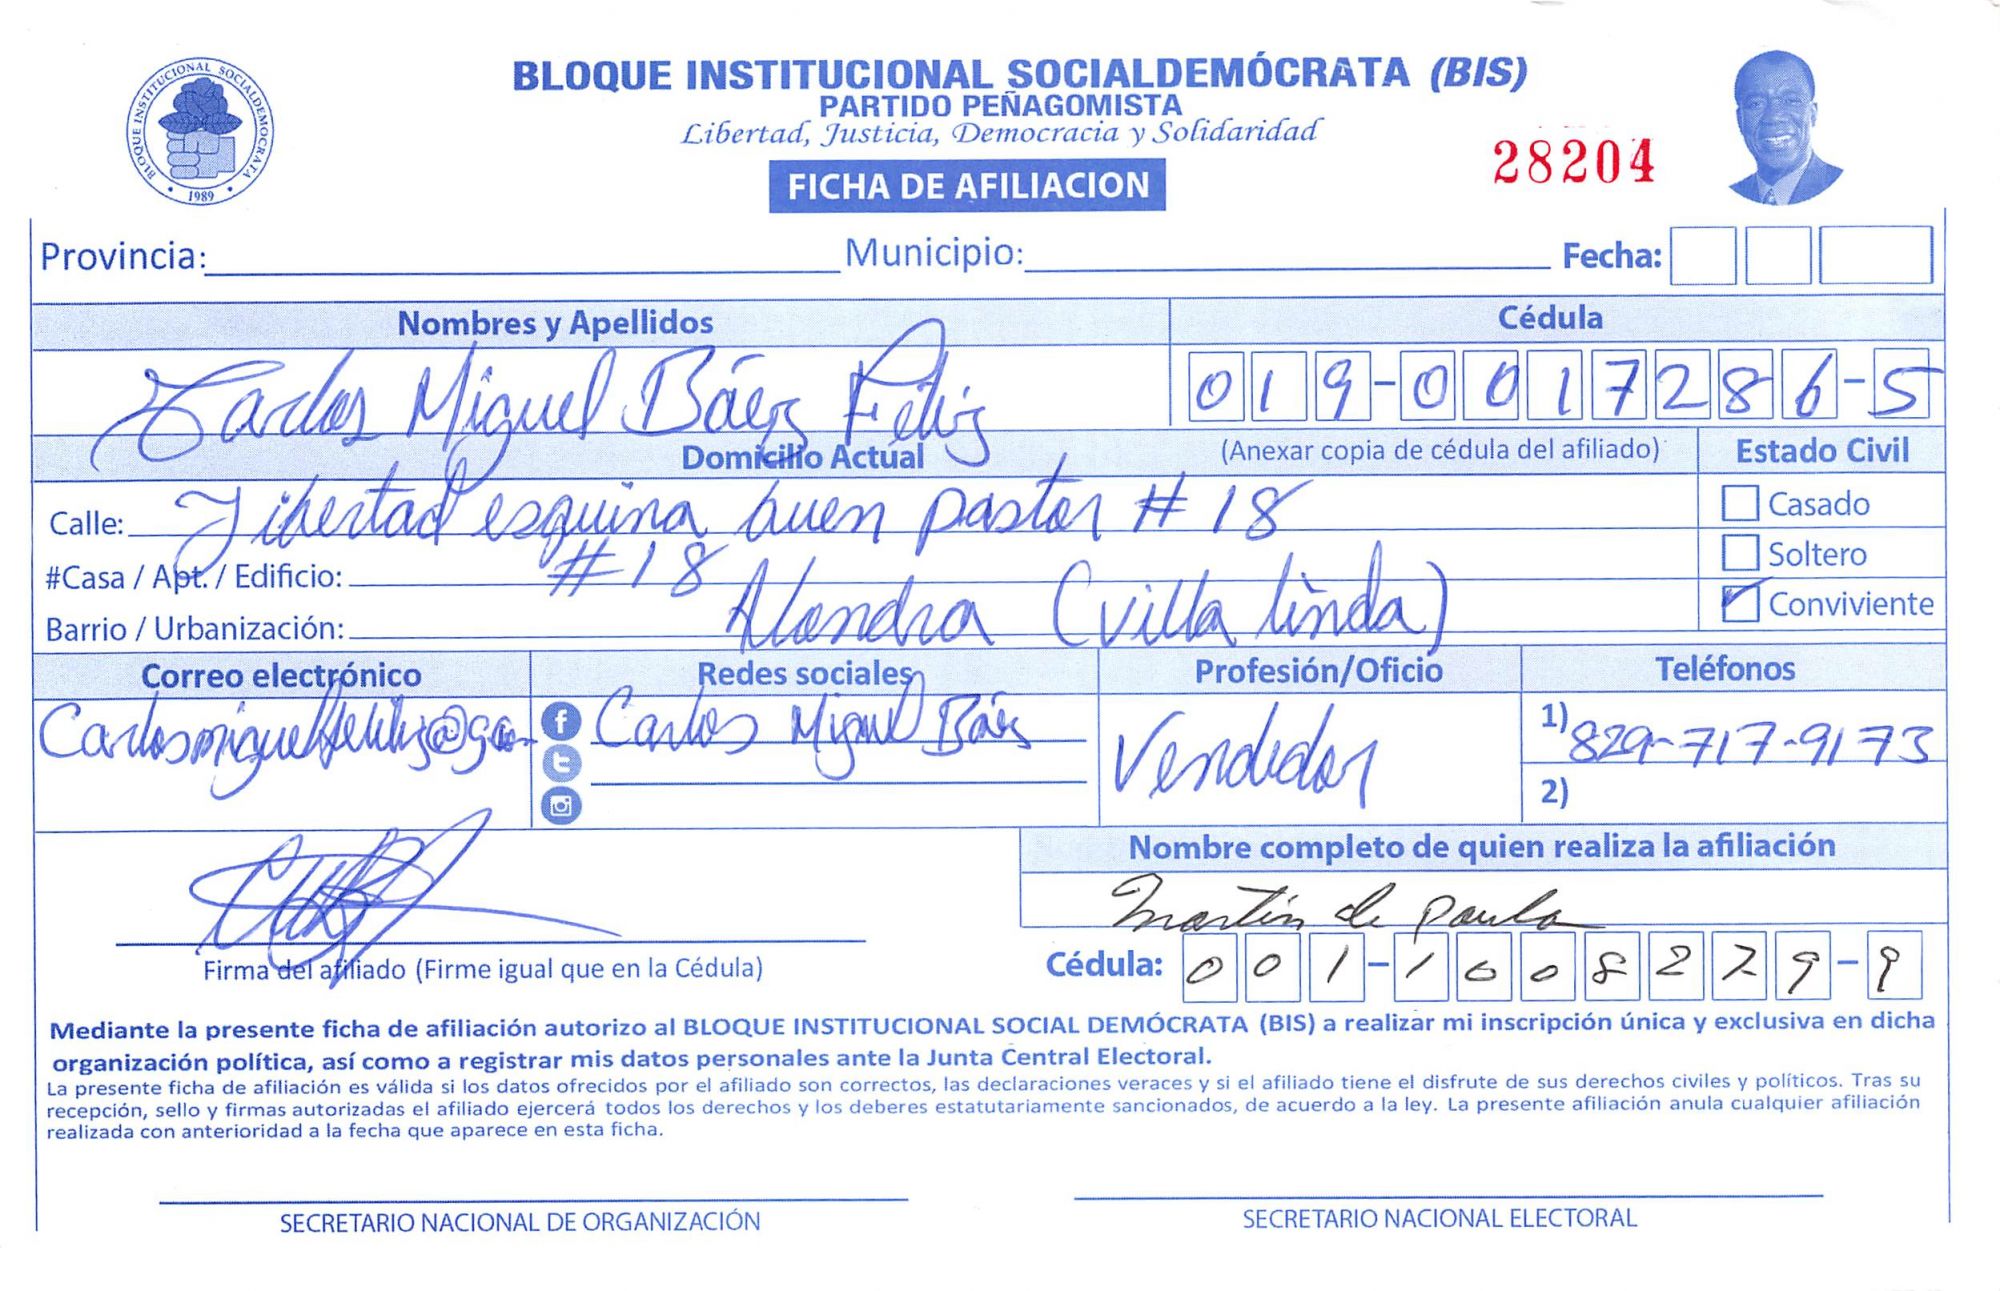 BLOQUE INSTITUCIONAL SOCIALDEMÓCRATA
1989
BLOQUE INSTITUCIONAL SOCIALDEMÓCRATA (BIS)
PARTIDO PEÑAGOMISTA
Libertad, Justicia, Democracia y Solidaridad
FICHA DE AFILIACION
28204
Provincia: Municipio: Fecha:
Nombres y Apellidos Cédula
Carlos Miguel Báez Féliz 019-0017286-5
Domicilio Actual (Anexar copia de cédula del afiliado) Estado Civil
Calle: Libertad esquina buen pastor # 18 Casado
#Casa / Apt. / Edificio: #18 Soltero
Barrio / Urbanización: Alondra (Villa linda) Conviviente
Correo electrónico Redes sociales Profesión/Oficio Teléfonos
Carlos Miguel Báez Vendedor 1) 829-717-9173
2)
Nombre completo de quien realiza la afiliación
Martin de Paula
Firma del afiliado (Firme igual que en la Cédula) Cédula: 001-1008279-9
Mediante la presente ficha de afiliación autorizo al BLOQUE INSTITUCIONAL SOCIAL DEMÓCRATA (BIS) a realizar mi inscripción única y exclusiva en dicha
organización política, así como a registrar mis datos personales ante la Junta Central Electoral.
La presente ficha de afiliación es válida si los datos ofrecidos por el afiliado son correctos, las declaraciones veraces y si el afiliado tiene el disfrute de sus derechos civiles y políticos. Tras su
recepción, sello y firmas autorizadas el afiliado ejercerá todos los derechos y los deberes estatutariamente sancionados, de acuerdo a la ley. La presente afiliación anula cualquier afiliación
realizada con anterioridad a la fecha que aparece en esta ficha.
SECRETARIO NACIONAL DE ORGANIZACIÓN SECRETARIO NACIONAL ELECTORAL